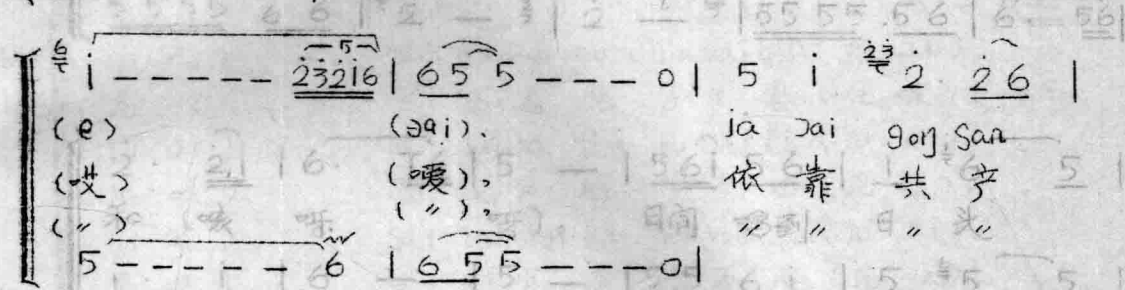 6 i̇ — — — — — 2̇3̇2̇i̇6 | 6 5 5 — — — 0 | 5 i̇ 2̇3̇ 2̇· 2̇ 6 |
(e) (ɔai)、 ja ɔai goŋ san
(哎) (嗳)。 依 靠 共 产
(〃) (〃)。 〃 〃 〃 〃
5 — — — — — 6 | 6 5 5 — — — 0 |